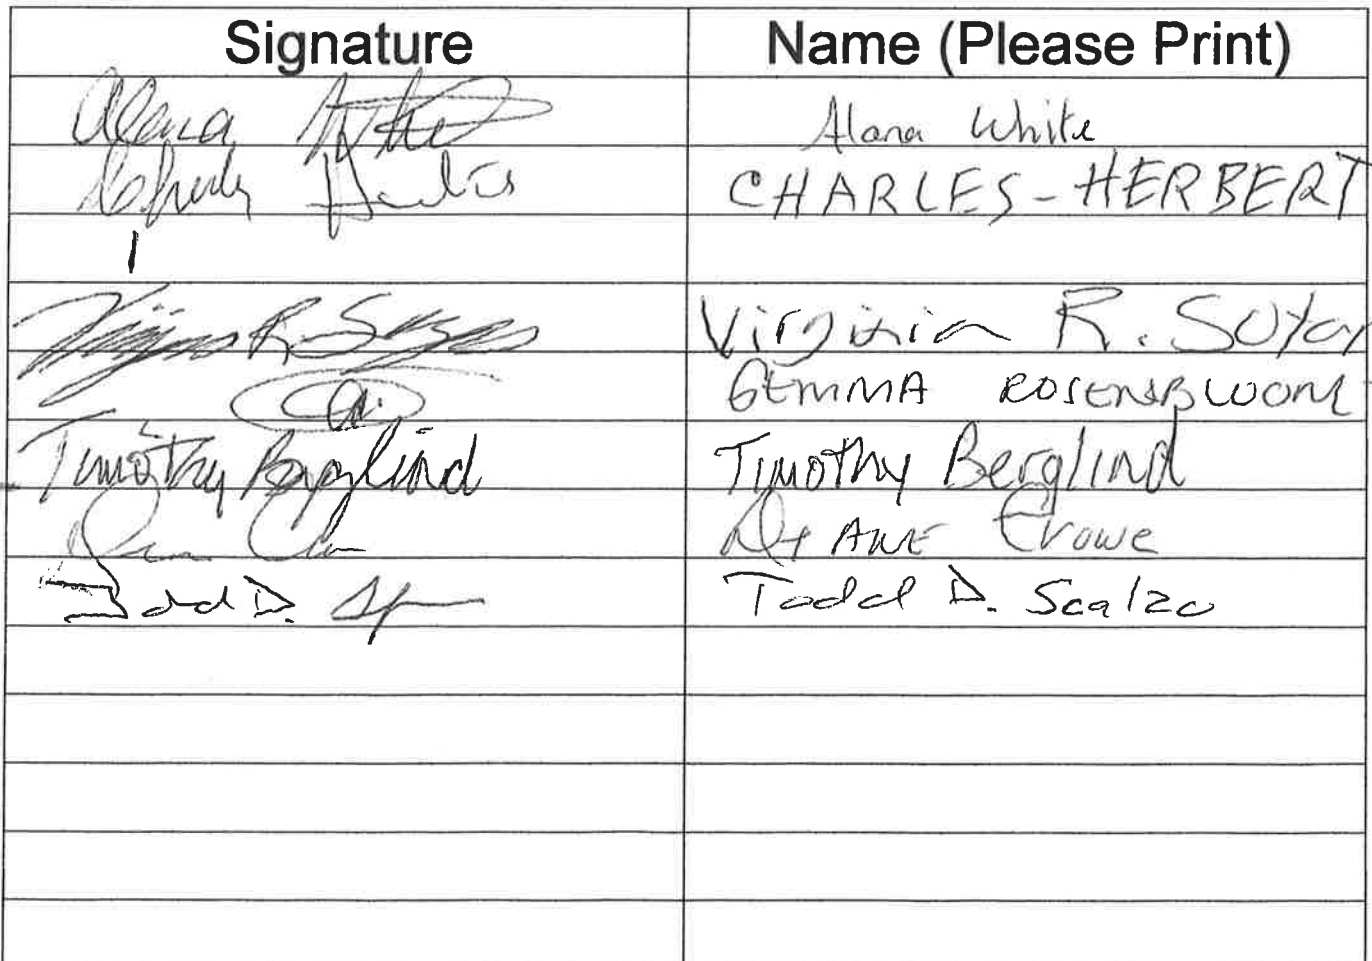 Signature Name (Please Print)
Alana White Alana White
Charles CHARLES-HERBERT
Virginia R. Virginia R.
GEMMA
Timothy Berglind Timothy Berglind
Crowe
Todd D. Todd D. Scalzo